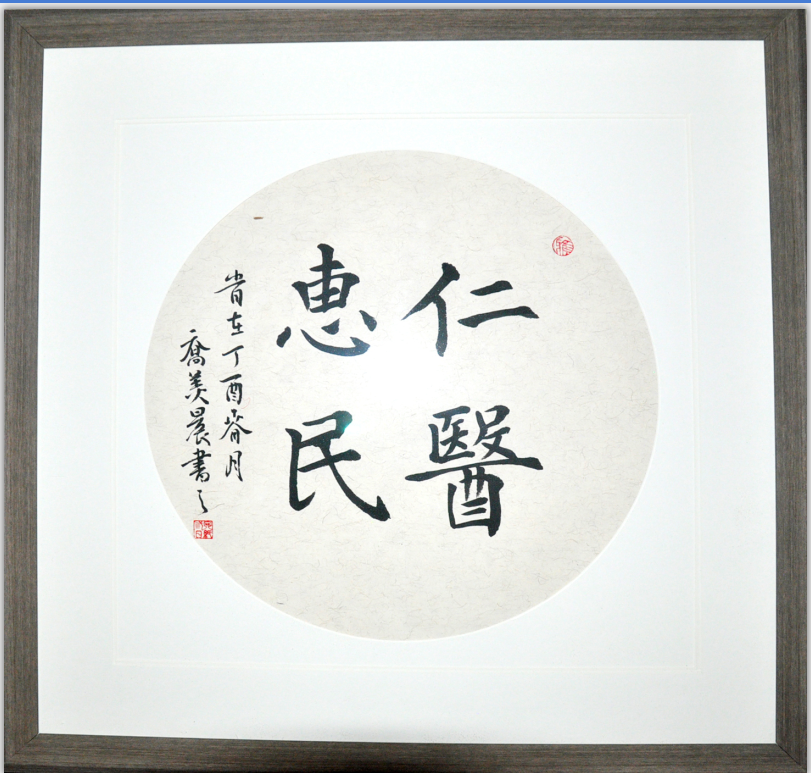 仁醫
惠民
旹在丁酉春月
喬美晨書之